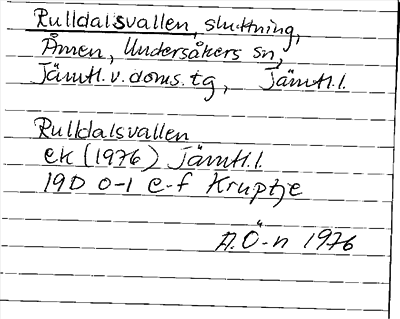 Rulldalsvallen, sluttning,
Åmen, Undersåkers sn,
Jämtl. v. doms. tg, Jämtl. l.
Rulldalsvallen
ek (1976) Jämtl. l.
19D 0-1 e-f Kruptje
A. Ö-n 1976